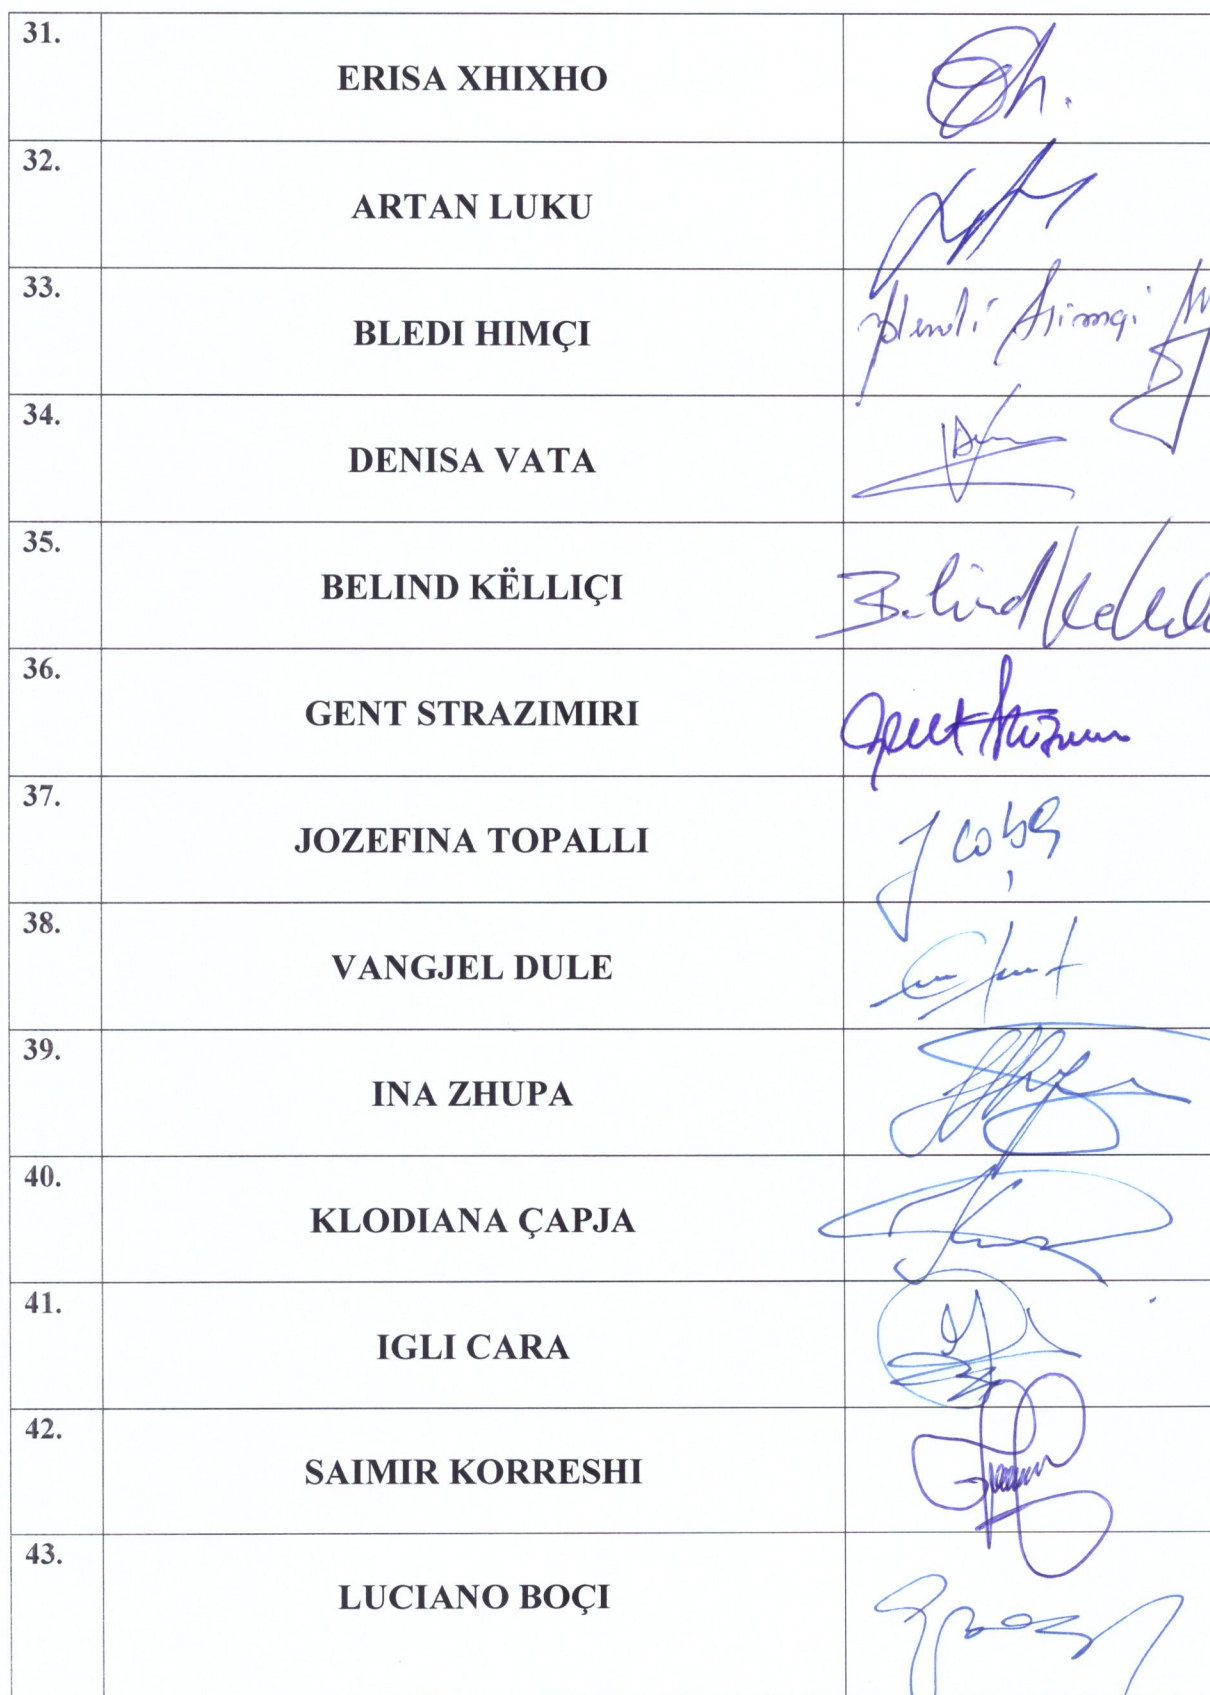 31.
ERISA XHIXHO
32.
ARTAN LUKU
33.
BLEDI HIMÇI
34.
DENISA VATA
35.
BELIND KËLLIÇI
Belind
36.
GENT STRAZIMIRI
Gent
37.
JOZEFINA TOPALLI
38.
VANGJEL DULE
39.
INA ZHUPA
40.
KLODIANA ÇAPJA
41.
IGLI CARA
42.
SAIMIR KORRESHI
43.
LUCIANO BOÇI